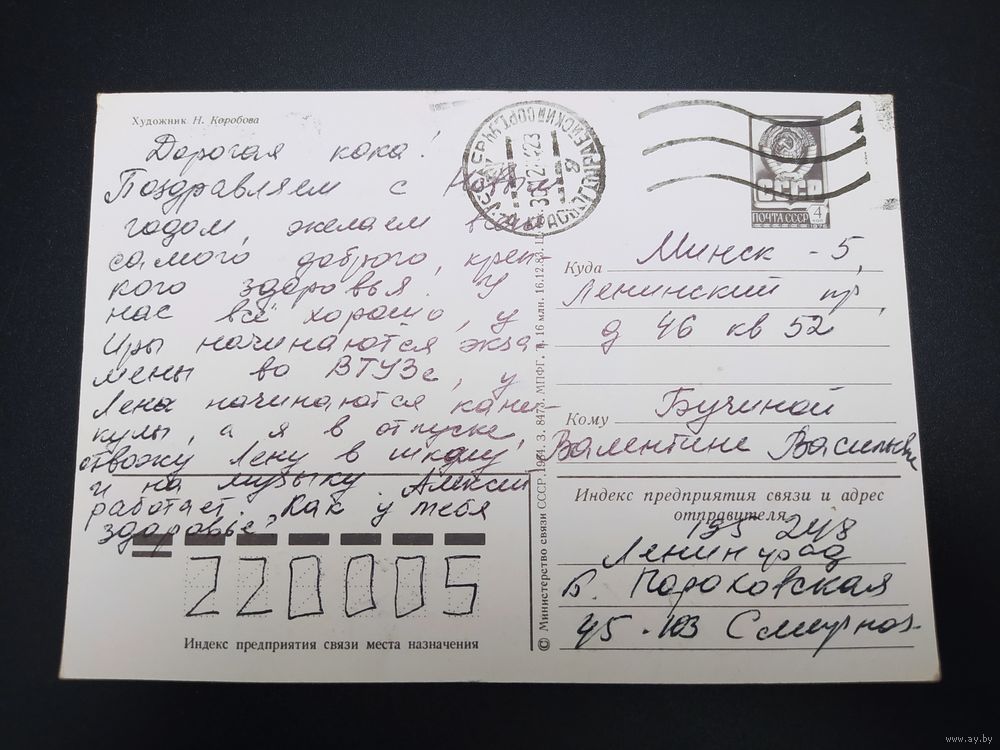 Художник Н. Коробова
Дорогая кока!
Поздравляем с Новым
годом, желаем всего
самого доброго, креп-
кого здоровья. У
нас всё хорошо, у
Иры начинаются экза
мены во ВТУЗе, у
Лены начинаются кани-
кулы, а я в отпуске,
отвожу Лену в школу
и на музыку. Алексей
работает. Как у тебя
здоровье?
220005
Индекс предприятия связи места назначения
© Министерство связи СССР. 1984. З. 8473. МПФГ. Ц. 16 млн. 16.12.83.
СССР
ПОЧТА СССР
4
Куда Минск - 5,
Ленинский пр,
д 46 кв 52
Кому Бучиной
Валентине Васильевне
Индекс предприятия связи и адрес
отправителя
195 248
Ленинград
Б. Пороховская
45 - 103 Смирнов
www.ay.by